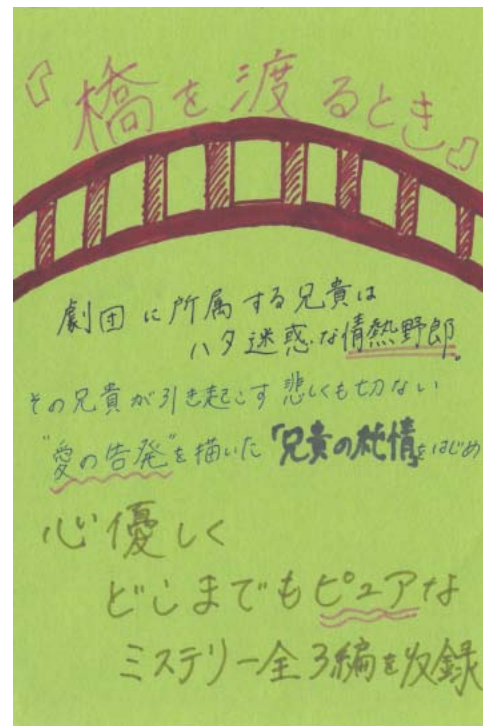 『橋を渡るとき』
劇団に所属する兄貴は
ハタ迷惑な情熱野郎。
その兄貴が引き起こす悲しくも切ない
"愛の告発"を描いた「兄貴の純情」をはじめ
心優しく
どこまでもピュアな
ミステリー全3編を収録